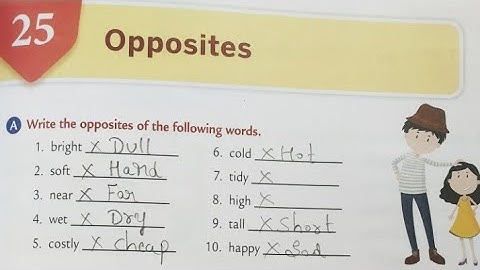 25
Opposites
A Write the opposites of the following words.
1. bright x Dull
2. soft x Hand
3. near x Far
4. wet x Dry
5. costly x Cheap
6. cold x Hot
7. tidy x
8. high x
9. tall x Short
10. happy x Sad